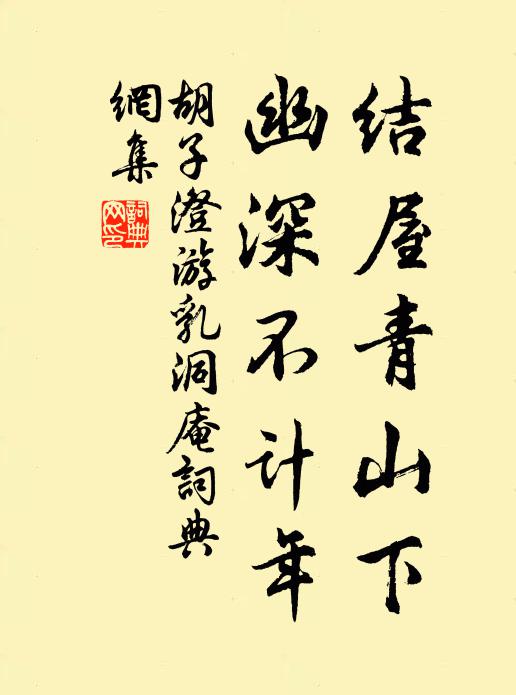 结屋青山下
幽深不计年
胡子澄游乳洞庵詞典
網集
詞典
网印